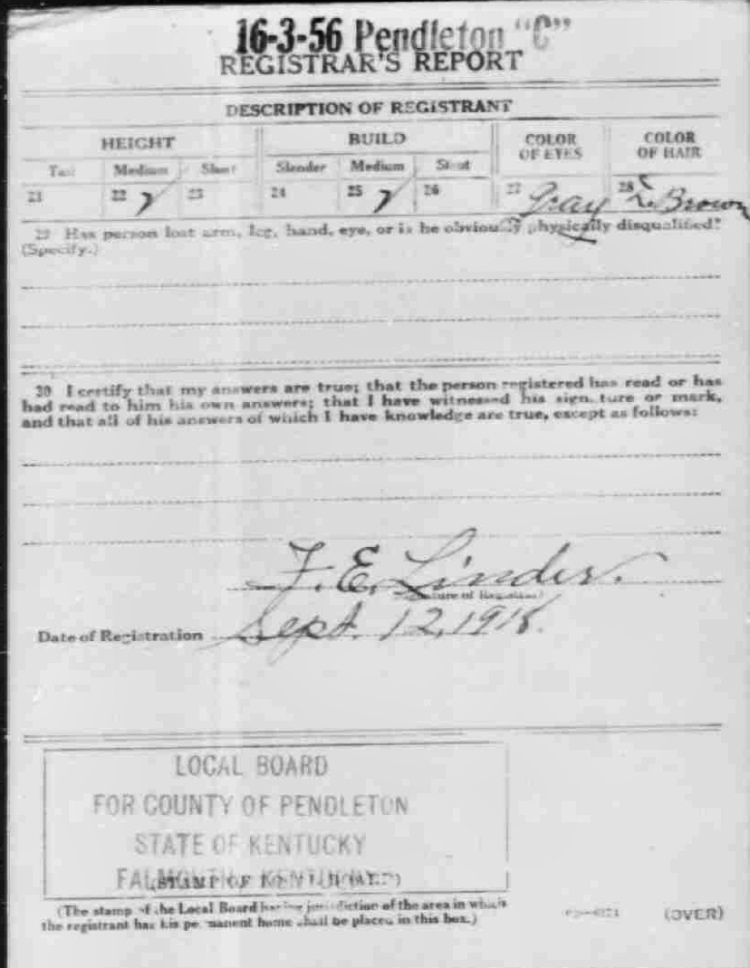 16-3-56 Pendleton "C"
REGISTRAR'S REPORT
DESCRIPTION OF REGISTRANT
HEIGHT BUILD COLOR OF EYES COLOR OF HAIR
Tall Medium Short Slender Medium Stout
21 22 ✓ 23 24 25 ✓ 26 27 Gray 28 L. Brown
29 Has person lost arm, leg, hand, eye, or is he obviously physically disqualified?
(Specify.)
30 I certify that my answers are true; that the person registered has read or has
had read to him his own answers; that I have witnessed his signature or mark,
and that all of his answers of which I have knowledge are true, except as follows:
F. E. Linder.
(Signature of Registrar)
Date of Registration Sept. 12, 1918.
LOCAL BOARD
FOR COUNTY OF PENDLETON
STATE OF KENTUCKY
FALMOUTH, KENTUCKY
(STAMP OF LOCAL BOARD)
(The stamp of the Local Board having jurisdiction of the area in which
the registrant has his permanent home shall be placed in this box.)
(OVER)